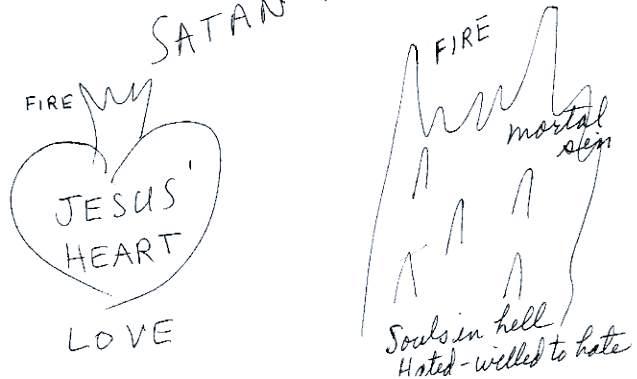 SATAN
FIRE
JESUS'
HEART
LOVE
FIRE
mortal
sin
Souls in hell
Hated-willed to hate